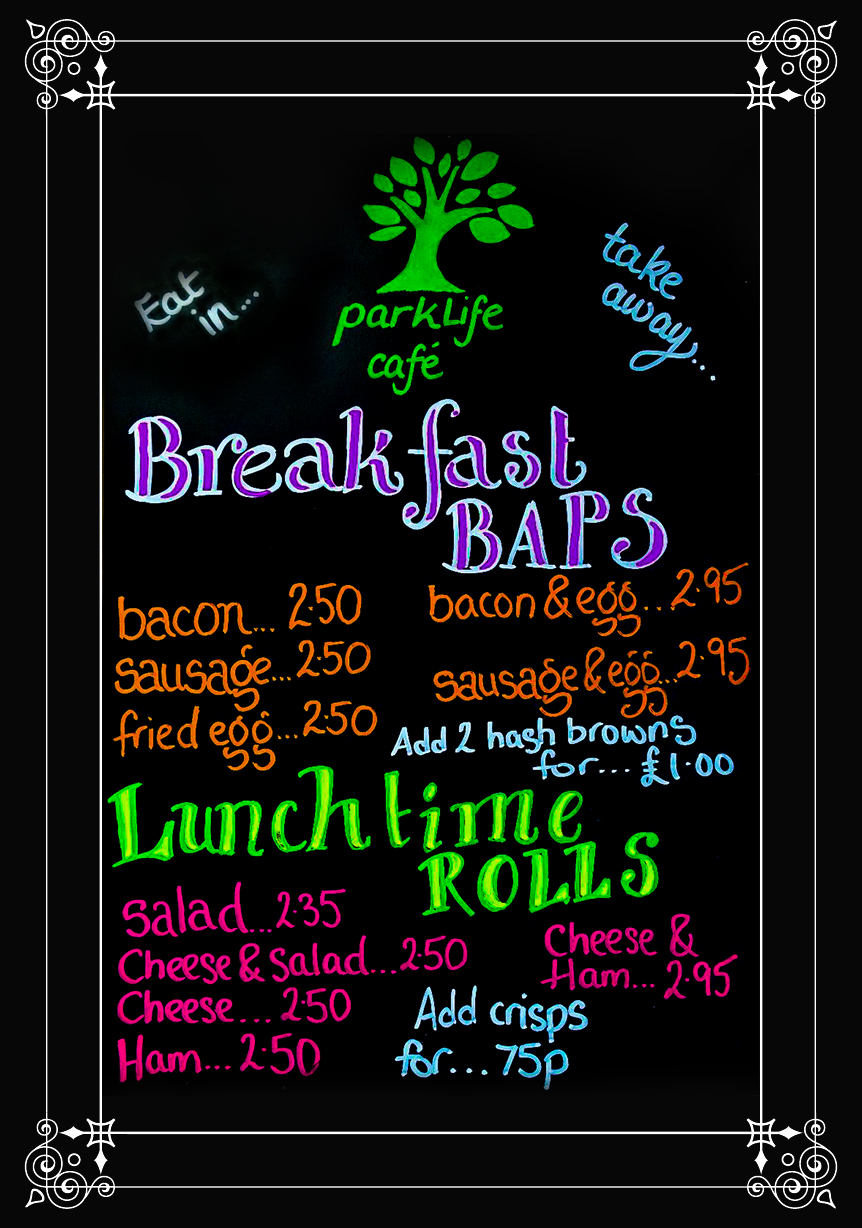 Eat
in...
take
away...
parkLife
café
Breakfast
BAPS
bacon... 2.50
sausage... 2.50
fried egg... 2.50
bacon & egg... 2.95
sausage & egg... 2.95
Add 2 hash browns
for... £1.00
Lunchtime
ROLLS
Salad... 2.35
Cheese & Salad... 2.50
Cheese... 2.50
Ham... 2.50
Cheese &
Ham... 2.95
Add crisps
for... 75p